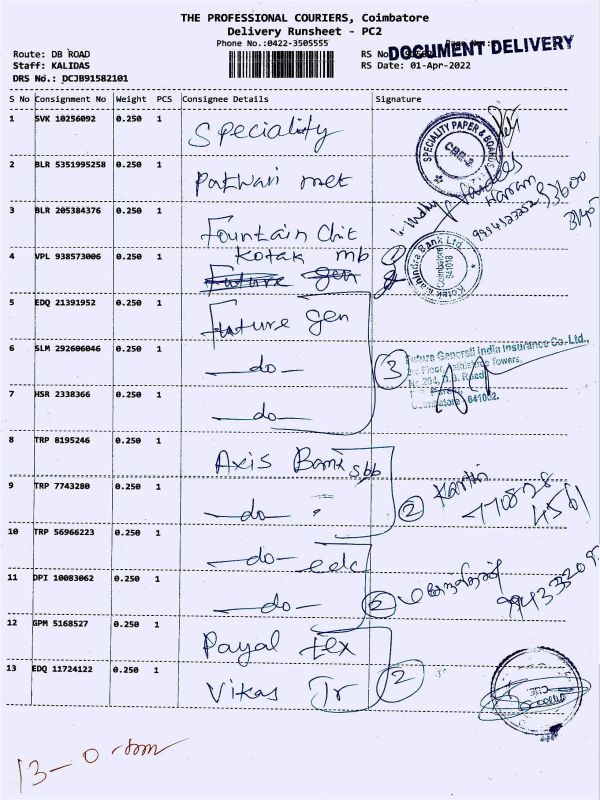 THE PROFESSIONAL COURIERS, Coimbatore
Delivery Runsheet - PC2
Phone No.:0422-3505555
DOCUMENT DELIVERY
Route: DB ROAD
Staff: KALIDAS
RS Date: 01-Apr-2022
DRS No.: DCJB91582101
S No Consignment No Weight PCS Consignee Details Signature
1 SVK 10256092 0.250 1 Speciality
SPECIALITY PAPER & BOARDS
CBE-2
2 BLR 5351995258 0.250 1 Pathari met
3 BLR 205384376 0.250 1 Fountain Chit
4 VPL 938573006 0.250 1 Kotak mb
Future Gen
Kotak Mahindra Bank Ltd.
Coimbatore
641018
5 EDQ 21391952 0.250 1 Future Gen
6 SLM 292606046 0.250 1 —do— 3
Future Generali India Insurance Co. Ltd.,
D.B. Road
Coimbatore 641002.
7 HSR 2338366 0.250 1 —do—
8 TRP 8195246 0.250 1 Axis Bank sbb
9 TRP 7743280 0.250 1 —do— " 2
10 TRP 56966223 0.250 1 —do— edc
11 DPI 10083062 0.250 1 —do— 2
12 GPM 5168527 0.250 1 Payal tex
13 EDQ 11724122 0.250 1 Vikas Tr 2
13-0-